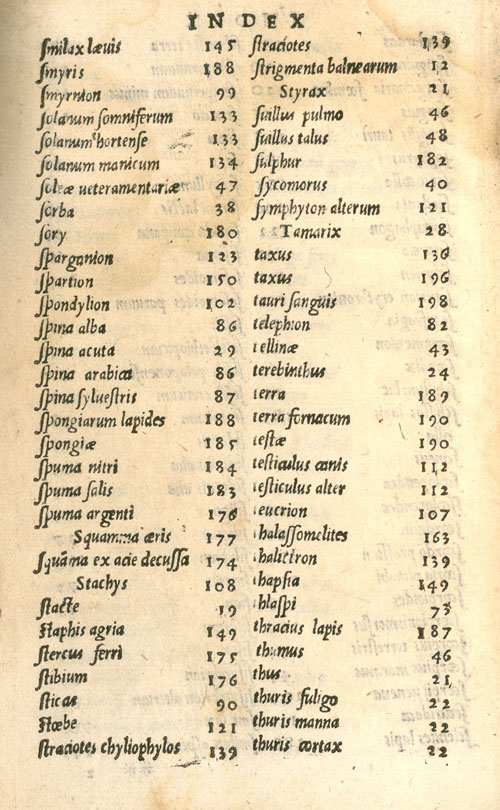 INDEX
ſmilax lævis 145
ſmyris 188
ſmyrnion 99
ſolanum ſomniferum 133
ſolanum hortenſe 133
ſolanum manicum 134
ſoleæ ueteramentariæ 47
ſorba 38
ſory 180
ſparganion 123
ſpartion 150
ſpondylion 102
ſpina alba 86
ſpina acuta 29
ſpina arabica 86
ſpina ſylueſtris 87
ſpongiarum lapides 188
ſpongiæ 185
ſpuma nitri 184
ſpuma ſalis 183
ſpuma argenti 176
Squamma æris 177
ſquāma ex acie decuſſa 174
Stachys 108
ſtacte 19
ſtaphis agria 149
ſtercus ferri 175
ſtibium 176
ſticas 90
ſtœbe 121
ſtraciotes chyliophylos 139
ſtraciotes 139
ſtrigmenta balnearum 12
Styrax 21
ſuillus pulmo 46
ſuillus talus 48
ſulphur 182
ſycomorus 40
ſymphyton alterum 121
Tamarix 28
taxus 136
taxus 196
tauri ſanguis 198
telephion 82
tellinæ 43
terebinthus 24
terra 189
terra fornacum 190
teſtæ 190
teſticulus canis 112
teſticulus alter 112
teucrion 107
thalaſſomelites 163
halitiron 139
thapſia 149
thlaſpi 73
thracius lapis 187
thumus 46
thus 21
thuris fuligo 22
thuris manna 22
thuris cortax 22